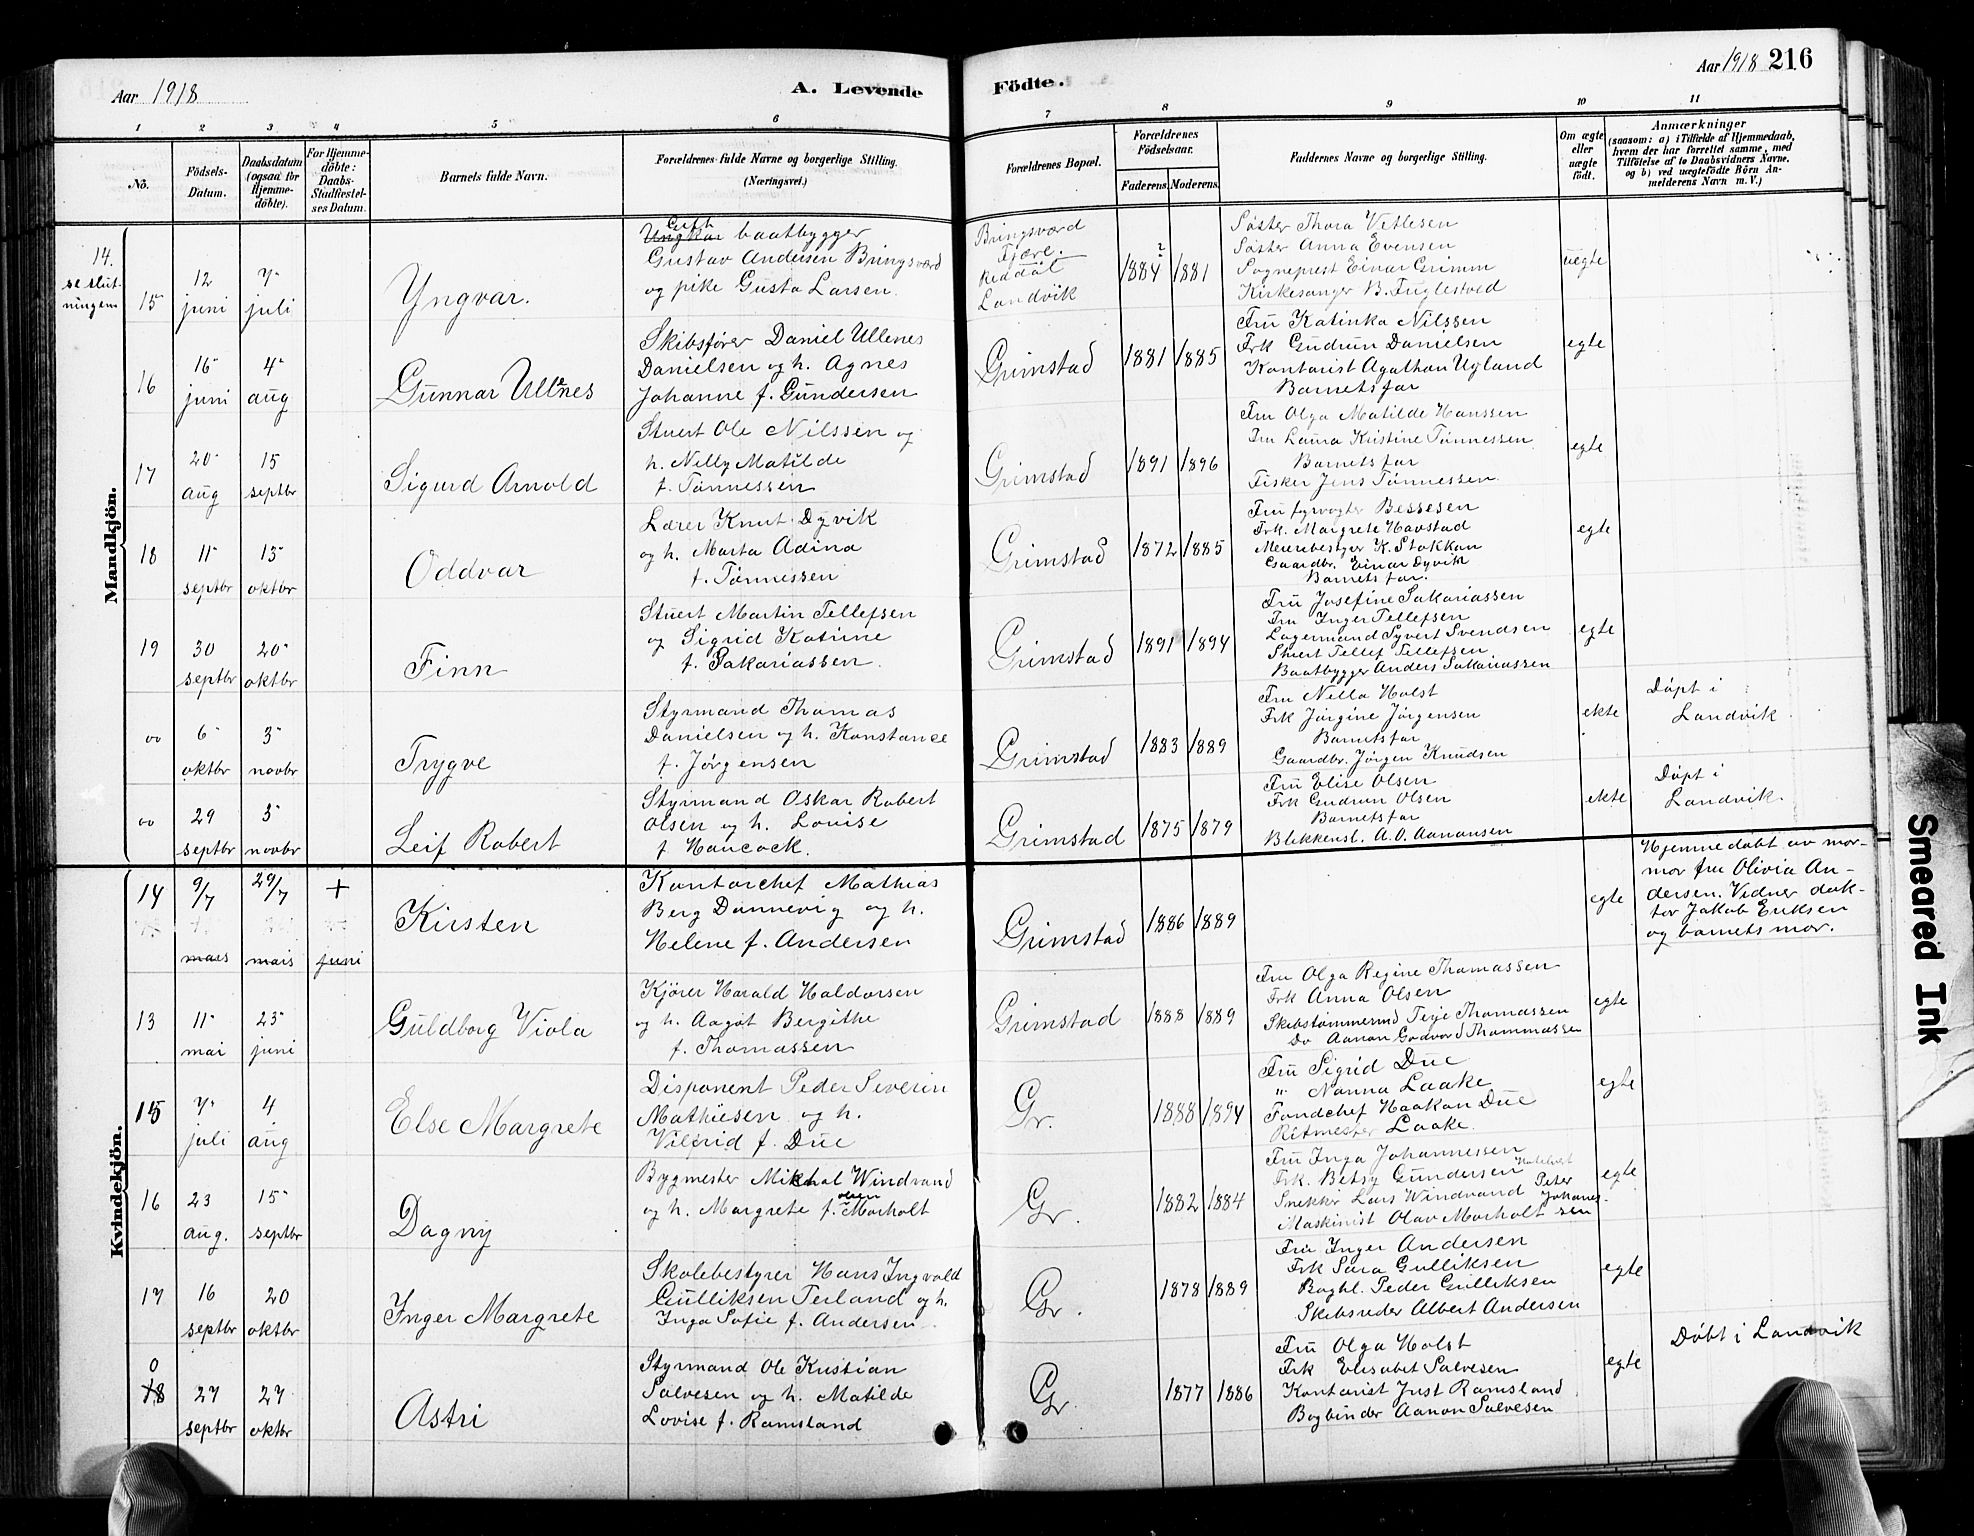 Aar 1918
A. Levende
Födte.
Aar 1918 216
1 2 3 4 5 6 7 8 9 10 11
No.
Födsels-
Datum.
Daabsdatum
(ogsaa for
Hjemme-
döbte).
For Hjemme-
döbte:
Daabs-
Stadfæstel-
ses Datum.
Barnets fulde Navn.
Forældrenes fulde Navne og borgerlige Stilling.
(Næringsvei.)
Forældrenes Bopæl.
Forældrenes
Födselsaar.
Faderens. Moderens.
Faddernes Navne og borgerlige Stilling.
Om ægte
eller
uægte
födt.
Anmærkninger
(saasom: a) i Tilfælde af Hjemmedaab,
hvem der har forrettet samme, med
Tilföielse af to Daabsvidners Navne,
og b) ved uægtefödte Börn An-
melderens Navn m. V.)
Mandkjön.
14.
se slut-
ningen
15
12
juni
7
juli
Yngvar.
Gift
Ungkar baatbygger
Gustav Andersen Bringsværd
og pike Gusta Larsen.
Bringsværd
Fjære.
Reddal
Landvik
1884 2 1881
Søster Thora Vetlesen
Søster Anna Evensen
Sogneprest Einar Grimm
Kirkesanger B. Fuglestved
uegte
16
16
juni
4
aug
Gunnar Ullenes
Skibsfører Daniel Ullenes
Danielsen og h. Agnes
Johanne f. Gundersen
Grimstad
1881 1885
Fru Katinka Nilssen
Frk Gudrun Danielsen
Kontorist Agathon Ugland
Barnets far
egte
17
20
aug
15
septbr
Sigurd Arnold
Stuert Ole Nilssen og
h. Nelly Matilde
f. Tønnessen
Grimstad
1891 1896
Fru Olga Matilde Hanssen
Fru Laura Kristine Tønnessen
Barnets far
Fisker Jens Tønnessen.
egte
18
11
septbr
13
oktbr
Oddvar
Lærer Knut Dyvik
og h. Marta Adina
f. Tønnessen
Grimstad
1872 1885
Fru fyrvogter Bessesen
Frk. Margrete Havstad
Meieribestyer K. Stokkan
Gaardbr. Einar Dyvik
Barnets far.
egte
19
30
septbr
20
oktbr
Finn
Stuert Martin Tellefsen
og Sigrid Katinne
f. Sakariassen.
Grimstad
1891 1894
Fru Josefine Sakariassen
Fru Inger Tellefsen
Lagermand Syvert Svendsen
Stuert Tellef Tellefsen
Baatbygger Anders Sakariassen
egte
oo
6
oktbr
3
novbr
Trygve
Styrmand Thomas
Danielsen og h. Konstance
f. Jørgensen
Grimstad
1883 1889
Fru Nella Holst
Frk Jørgine Jørgensen
Barnets far
Gaardbr. Jørgen Knudsen
ekte
Døpt i
Landvik
oo
29
septbr
3
novbr
Leif Robert
Styrmand Oskar Robert
Olsen og h. Louise
f Hancock.
Grimstad
1875 1879
Fru Elise Olsen
Frk Gudrun Olsen
Barnets far
Blikkensl. A. O. Aanonsen
ekte
Døpt i
Landvik.
Kvindekjön.
14
9/7
mars
29/7
mars
+
juni
Kirsten
Kontorchef Mathias
Berg Dannevig og h.
Helene f. Andersen
Grimstad
1886 1889
egte
Hjemmedøbt av mor-
mor fru Olivia An-
dersen. Vidner dok-
tor Jakob Eriksen
og barnets mor.
13
11
mai
23
juni
Guldborg Viola
Kjører Harald Haldorsen
og h. Aagot Bergithe
f. Thomassen
Grimstad
1888 1889
Fru Olga Regine Thomassen
Frk Anna Olsen
Skibstømmermd Terje Thomassen
Do Aanon Godvord Thommassen
egte
15
7
juli
4
aug
Else Margrete
Disponent Peder Severin
Mathiesen og h.
Vilfrid f. Due
Gr.
1888 1894
Fru Sigrid Due
" Nanna Laake
Fondchef Haakon Due
Ritmester Laake.
egte
16
23
aug.
15
septbr
Dagny
Bygmester Mikhal Windvand
og h. Margrete f. Olsen Morholt
Gr.
1882 1884
Fru Inga Johannessen
Frk. Betsy Gundersen
Snekker Lars Windvand Peter
Maskinist Olav Morholt Johannes-
sen
egte
17
16
septbr
20
oktbr
Inger Margrete
Skolebestyrer Hans Ingvald
Gulliksen Terland og h.
Inga Sofie f. Andersen
Gr.
1878 1889
Fru Inger Andersen
Frk Sara Gulliksen
Boghl. Peder Gulliksen
Skibsreder Albert Andersen
egte
0
18
27
septbr
27
oktbr
Astri
Styrmand Ole Kristian
Salvesen og h. Matilde
Lovise f. Ramsland
Gr.
1877 1886
Fru Olga Holst
Frk Elisabet Salvesen
Kontorist Just Ramsland
Bogbinder Aanon Salvesen
egte
Døbt i Landvik
Smeared Ink